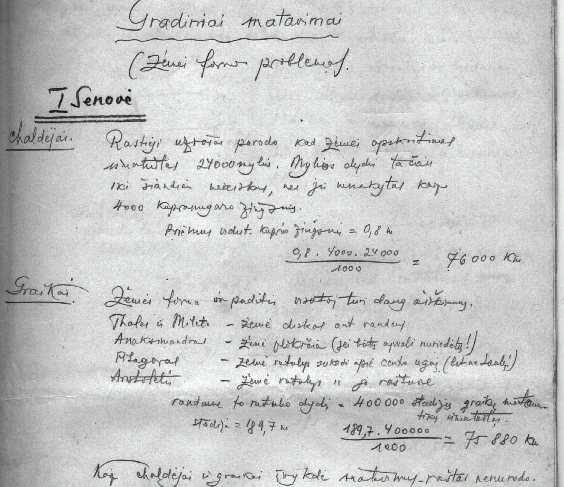 Gradiniai matavimai
(Žemės formos problemos).
I Senovė
Chaldėjai.
Rastieji užrašai parodo kad žemės apskritimas
išmatuotas 24000 mylių. Mylios dydis tačiau
iki šiandien neaiškus, nes jis nusakytas kaip
4000 kupranugario žingsnių.
Priėmus vidut. kupr. žingsnį = 0,8 m
0,8 . 4000 . 24000 / 1000 = 76000 Km
Graikai.
Žemės forma ir padėtis turi daug aiškinimų.
Thales iš Mileto - žemė diskas ant vandens
Anaksimandras - žemė plokščia (jei būtų apvali nuriedėtų!)
Pitagoras - žemė rutulys sukasi apie centro ugnį
Aristotelis - žemė rutulys ir ja
randame to rutulio dydį = 400000 stadijų graikų
išmatuotas.
stadija = 189,7 m
189,7 . 400000 / 1000 = 75 880 Km
Kaip chaldėjai ir graikai įvykdė matavimus - raštai nenurodo.